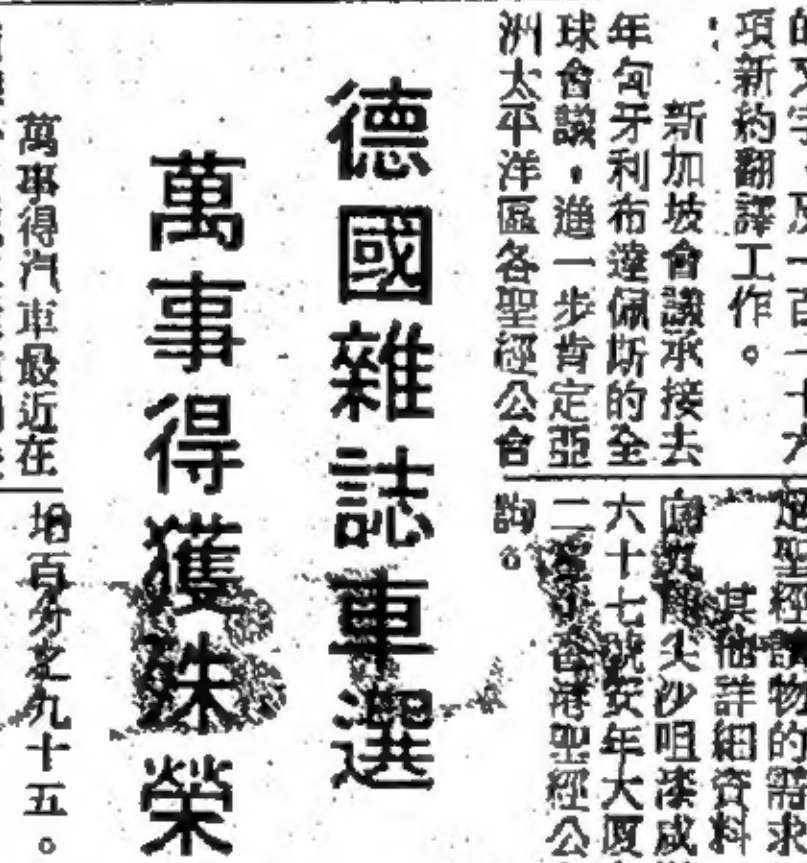 項新約翻譯工作。
新加坡會議承接去
年匈牙利布達佩斯的全
球會議，進一步肯定亞
洲太平洋區各聖經公會
聖經讀物的需求
其他詳細資料
尖沙咀漆咸
六十七號安年大厦
二 香港聖經公
詢。
德國雜誌車選
萬事得獲殊榮
萬事得汽車最近在
培百分之九十五。